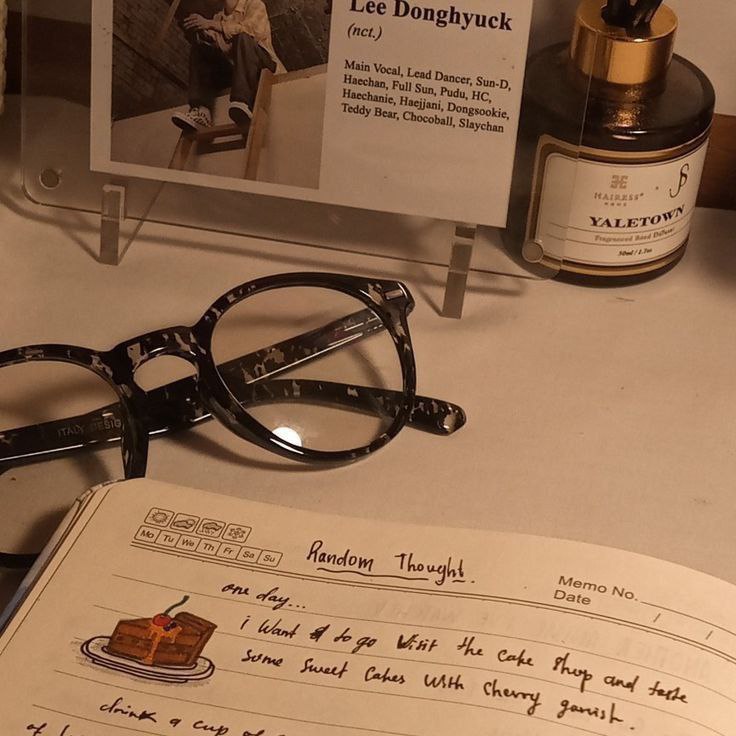 Lee Donghyuck
(nct.)
Main Vocal, Lead Dancer, Sun-D,
Haechan, Full Sun, Pudu, HC,
Haechanie, Haejjani, Dongsookie,
Teddy Bear, Chocoball, Slaychan
HAIRESS
YALETOWN
Fragranced Reed Diffuser
50ml / 1.7oz
ITALY DESIGN
Mo Tu We Th Fr Sa Su
Random Thought.
Memo No.
Date / /
one day...
i want to go visit the cake shop and taste
some sweet cakes with cherry garnish.
drink a cup of
of